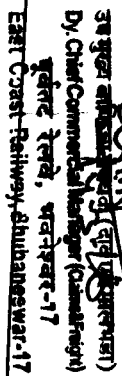 उप मुख्य वाणिज्य
Dy. Chief Commercial Manager (Claims&Freight)
पूर्वतट रेलवे, भुवनेश्वर-17
East Coast Railway, Bhubaneswar-17